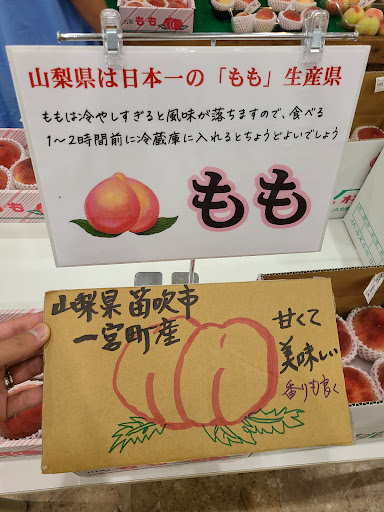 もも
山梨県は日本一の「もも」生産県
ももは冷やしすぎると風味が落ちますので、食べる
1〜2時間前に冷蔵庫に入れるとちょうどよいでしょう
もも
山梨県笛吹市
一宮町産
甘くて
美味しい
香りも良く